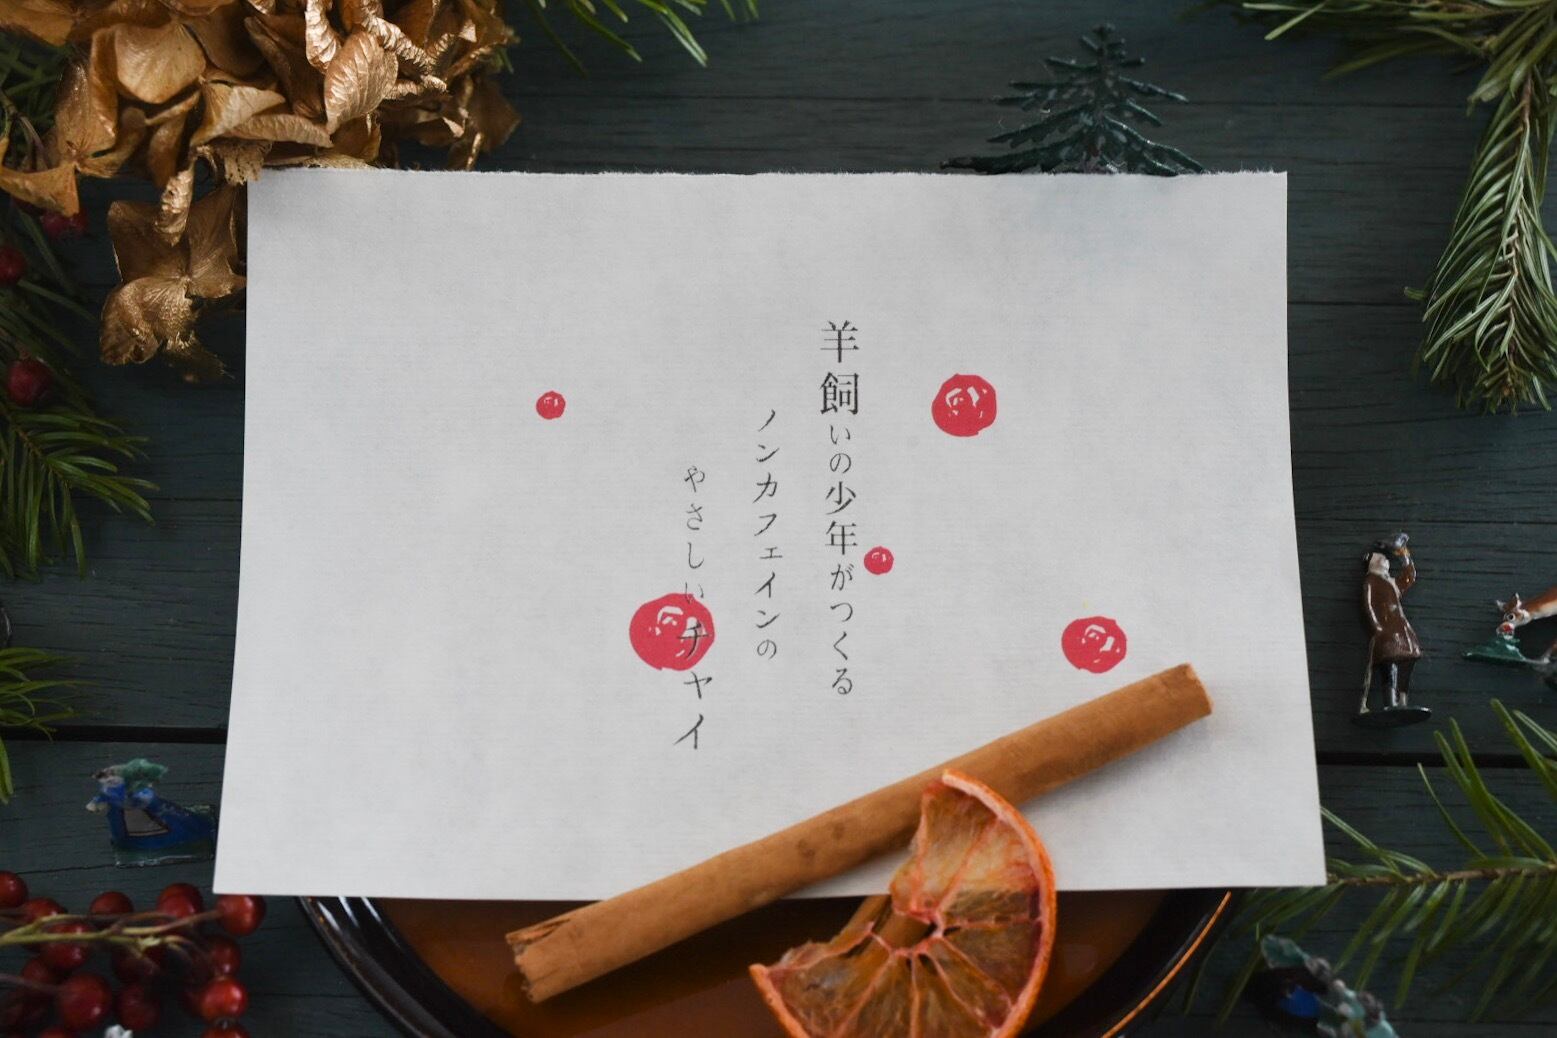 羊飼いの少年がつくる
ノンカフェインの
やさしいチャイ